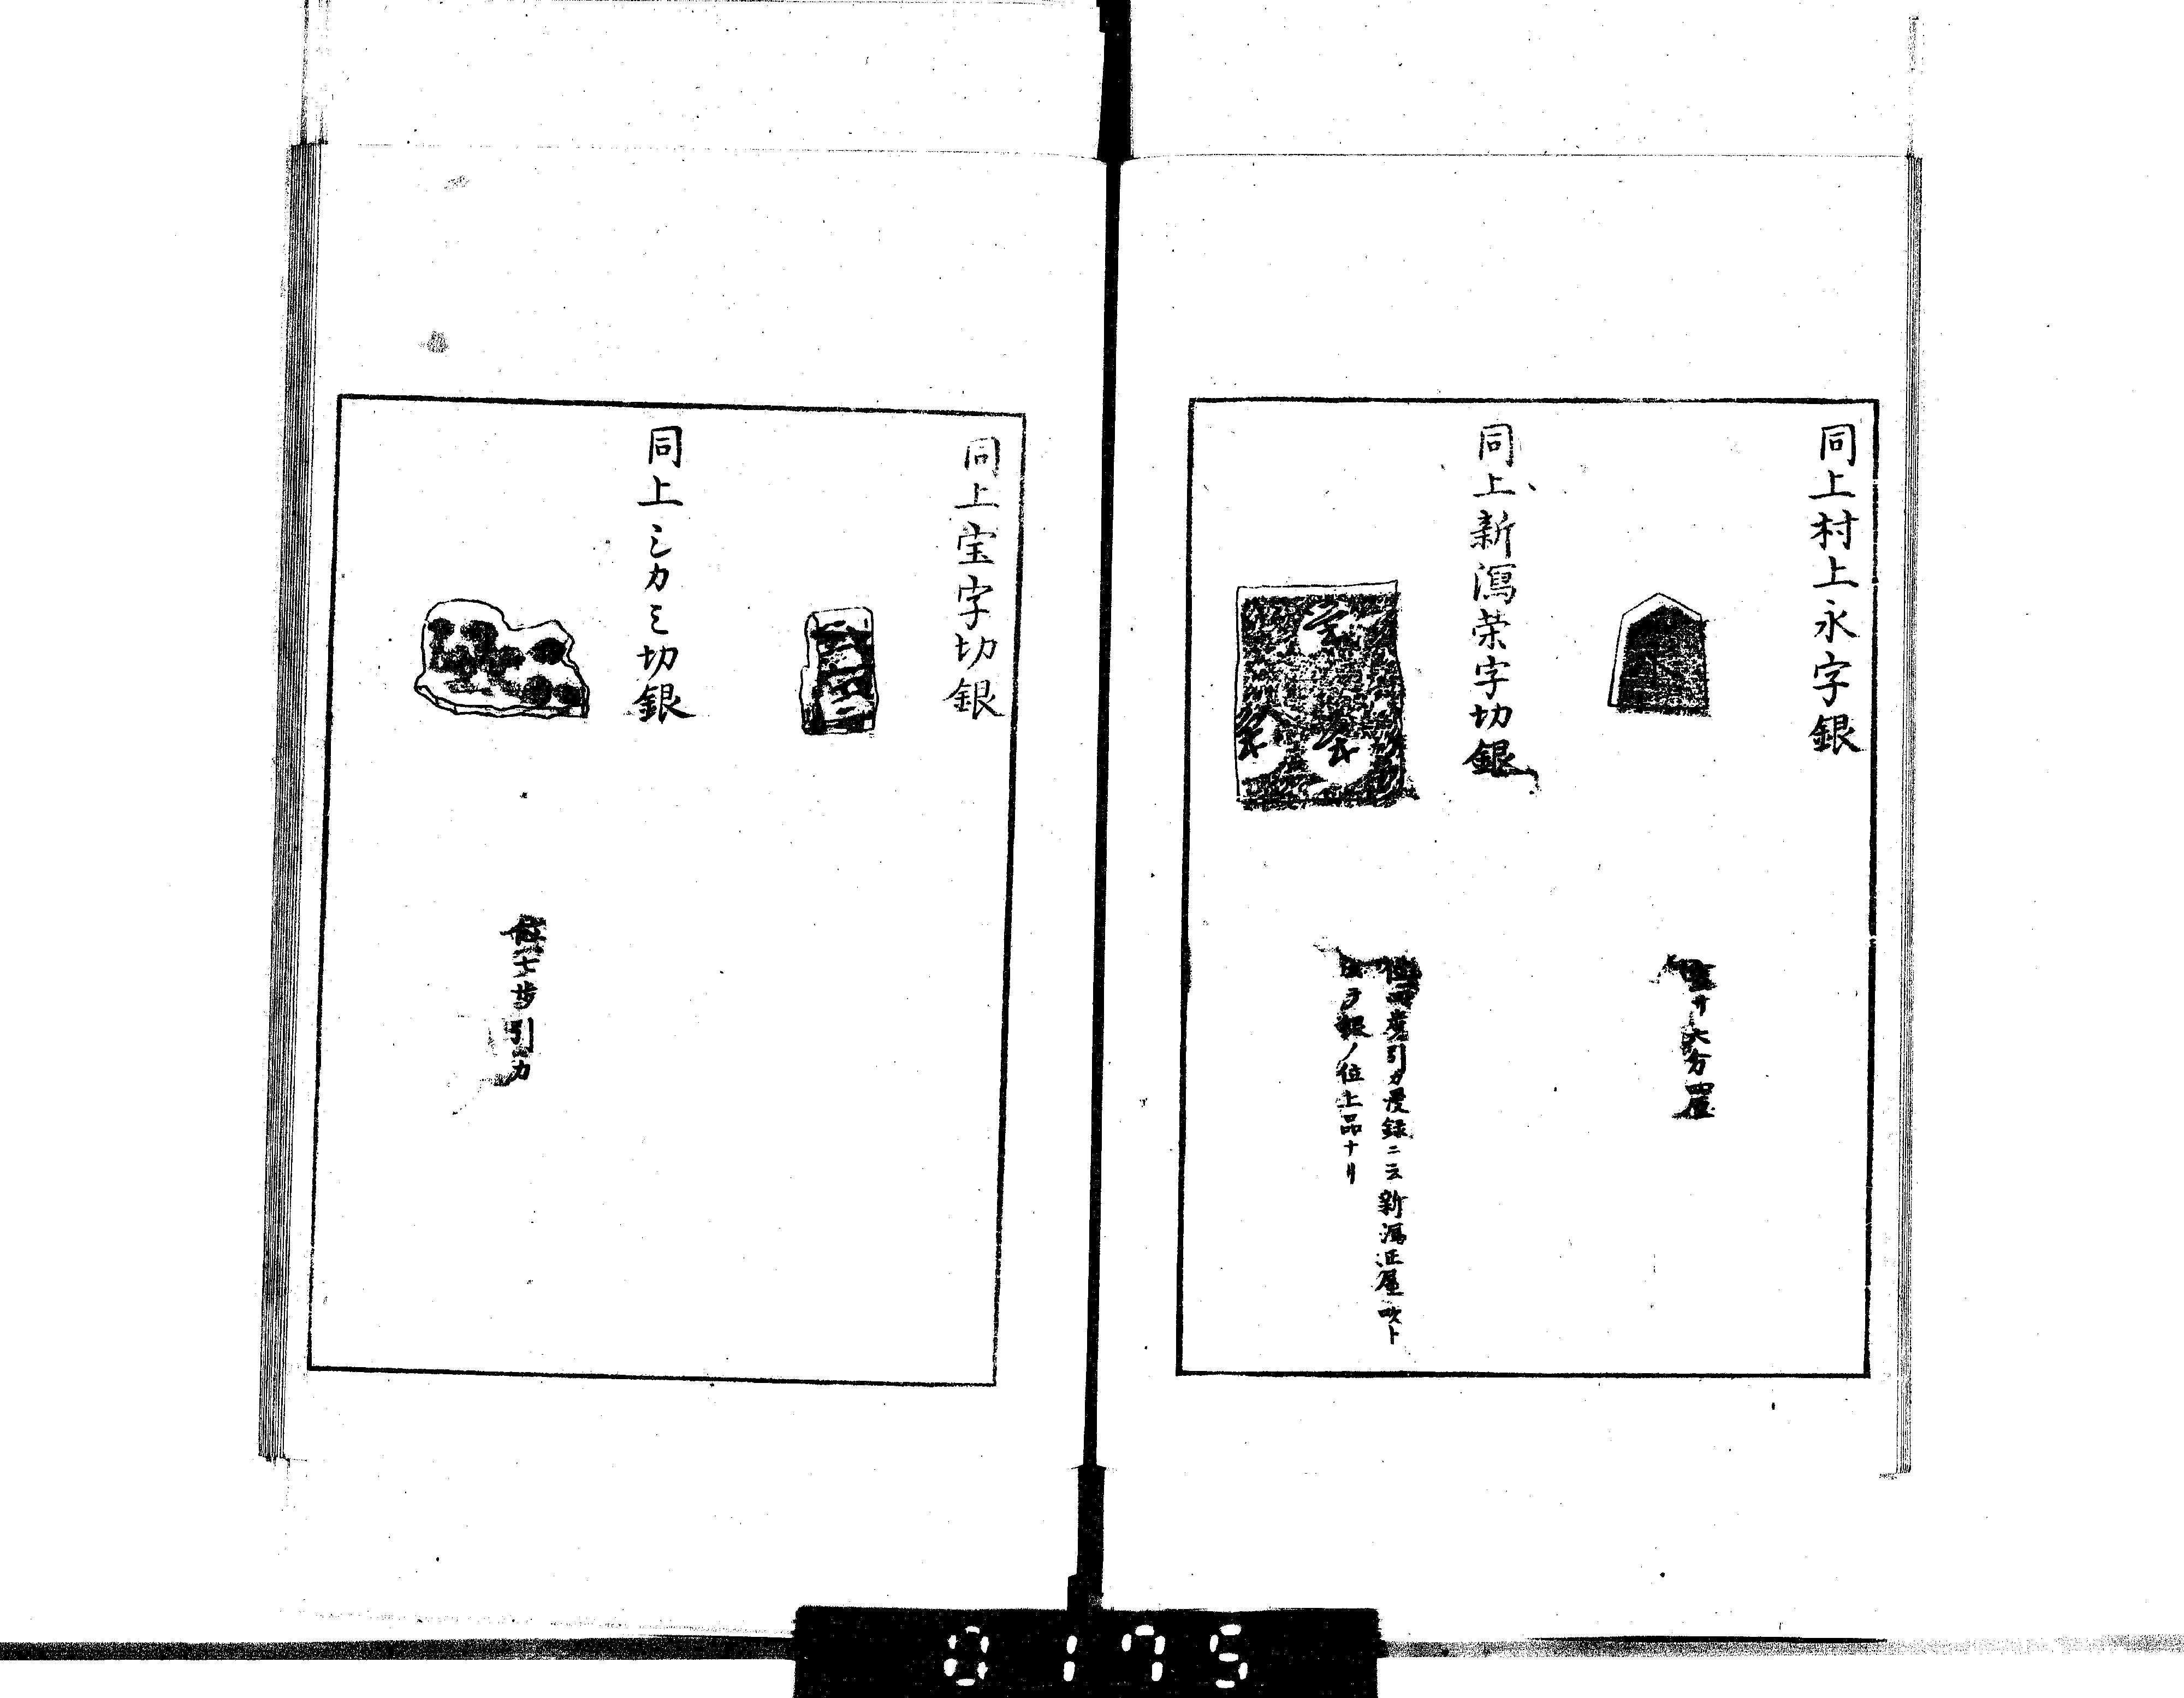 同上村上永字銀
大方
同上新潟栄字切銀
引カ漫録ニ云新潟正屋吹ト
ヲ銀ノ位上品ナリ
同上宝字切銀
同上シカミ切銀
位七歩引カ
0175